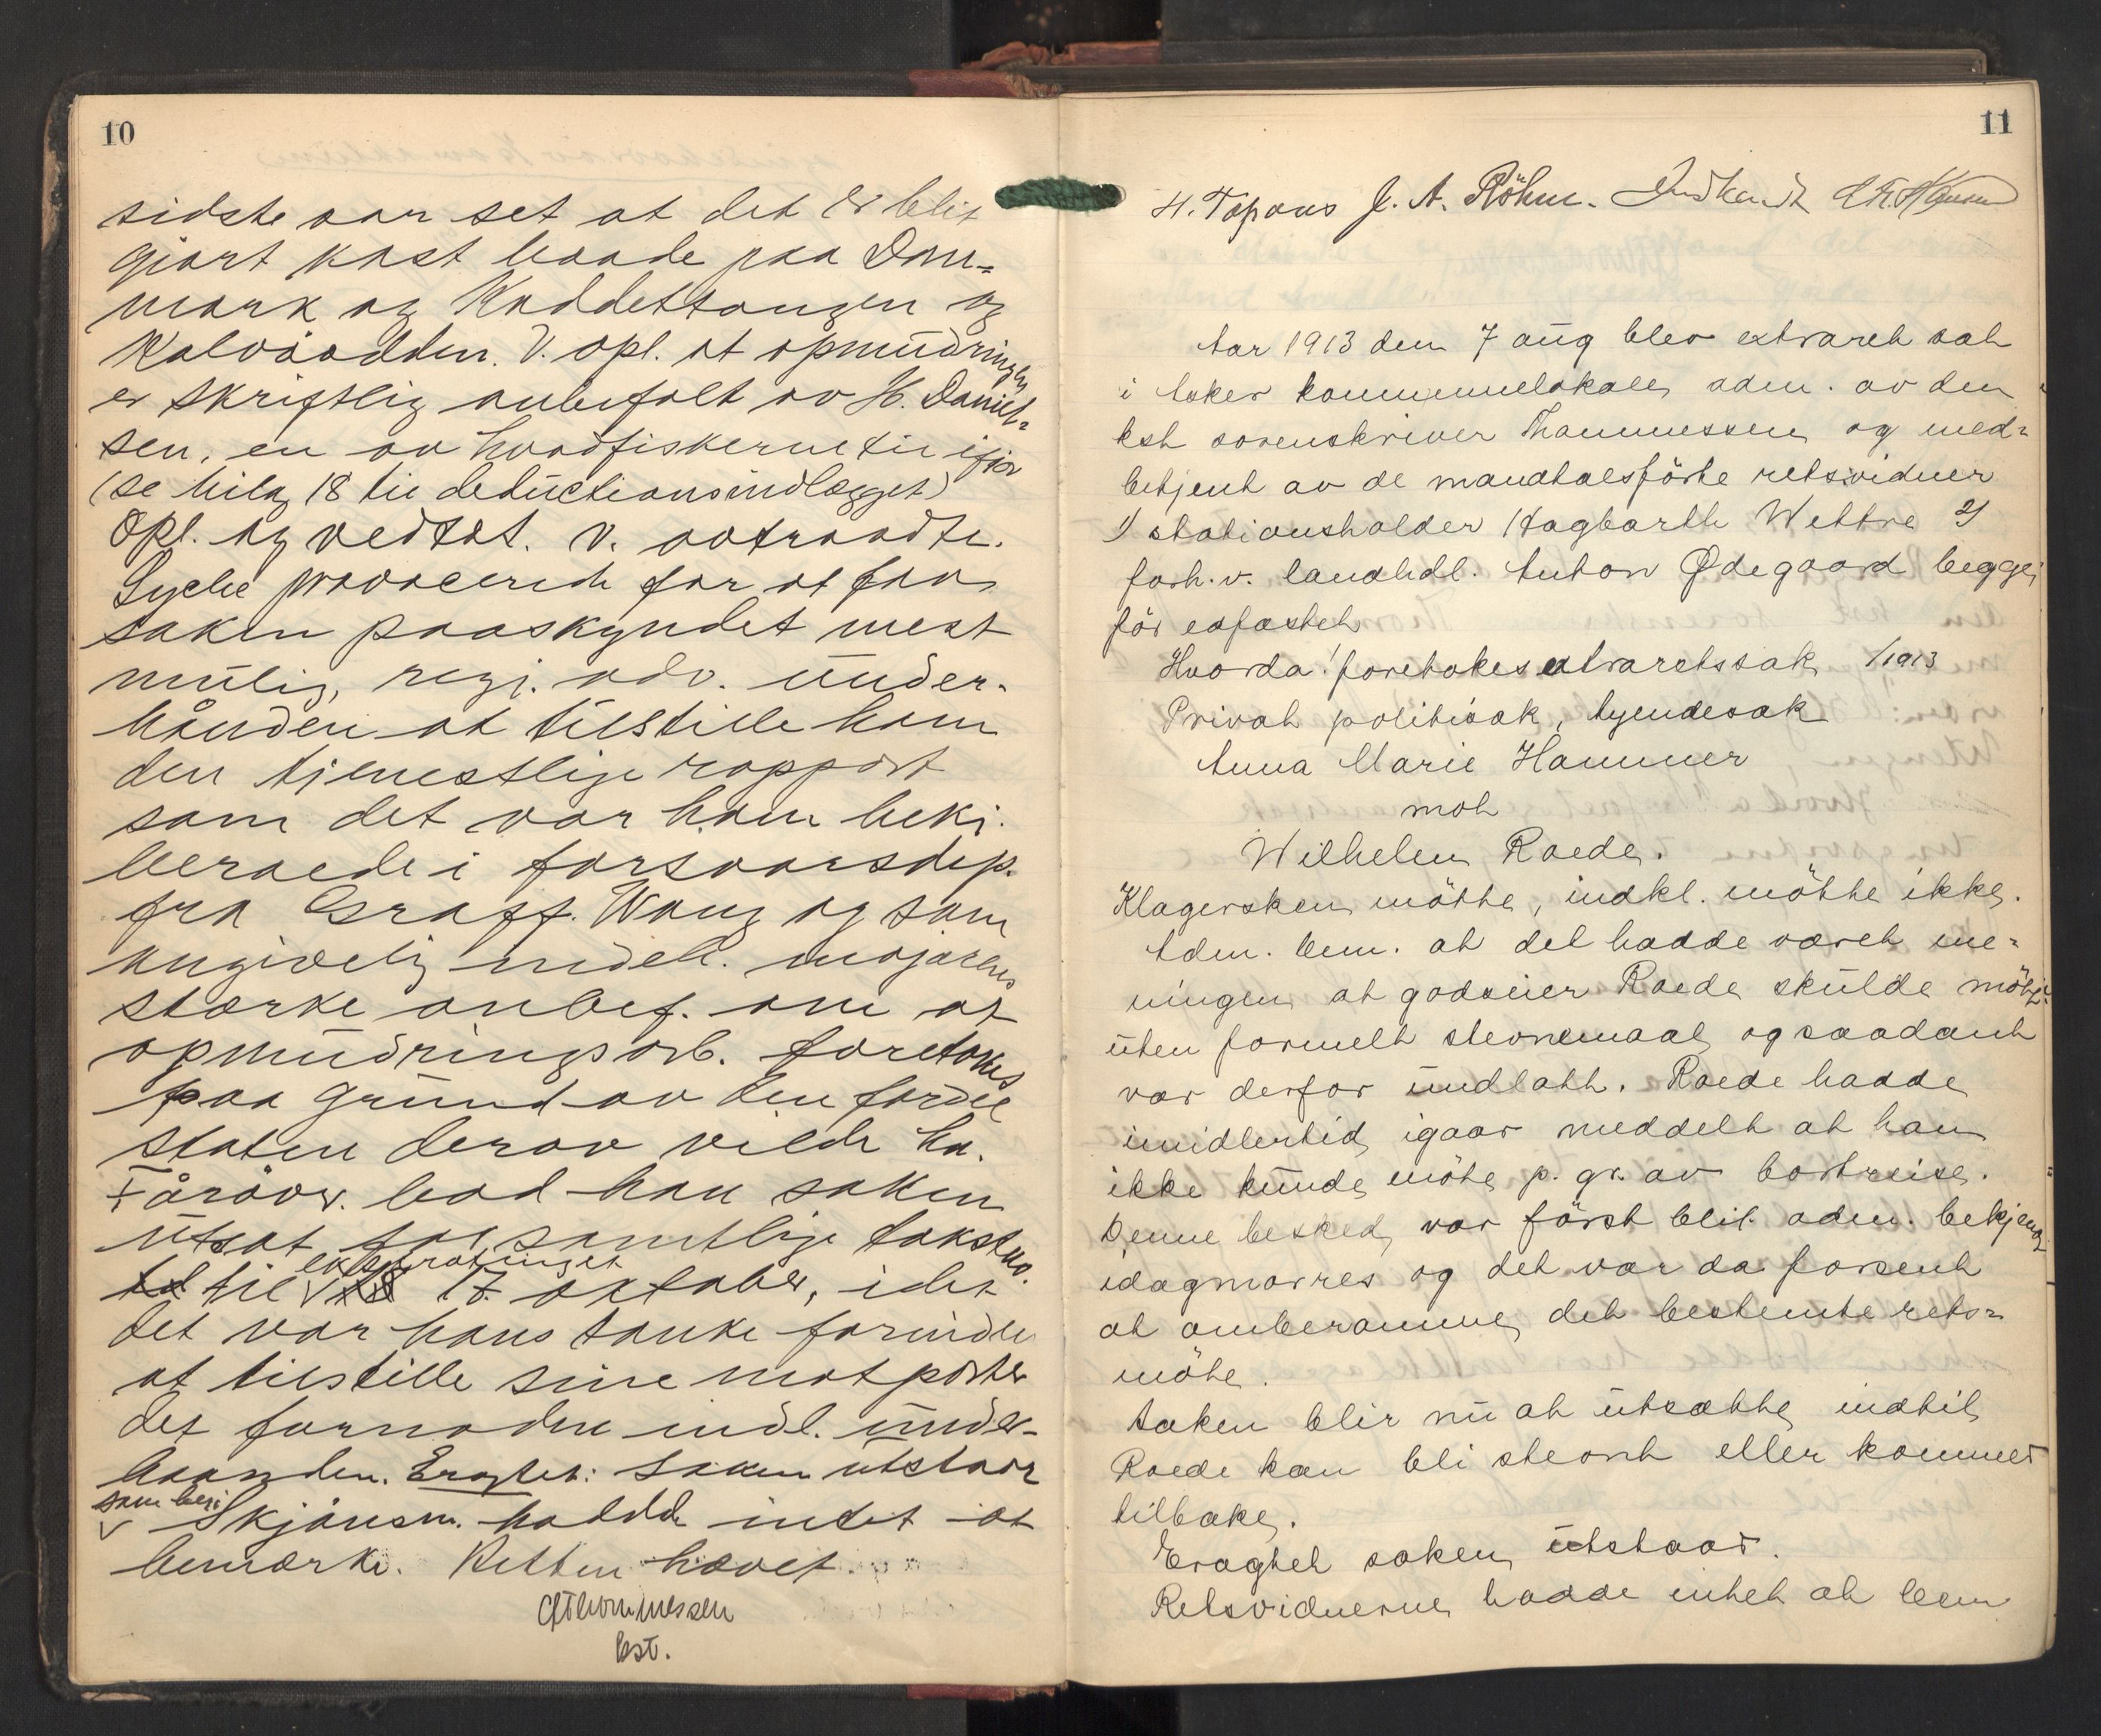 10
sidste aar set at det er blit
gjort kast baade paa Dan-
mark og Kaddettangen og
Kalvöodden. V. opl. at opmudringen
er skriftlig anbefalt av H. Daniel-
sen, en av hvadfiskerne til ifjor
(se bilag 18 til deductionsindlægget)
Opl. og vedtat. V. aatraadte.
Lyche provocerede for at faa
saken paaskyndet mest
mulig, regj. adv. under-
hånden at tilstille ham
den tjenestlige rapport
som det var ham bekj.
beroede i forsvarsdep.
fra Wang og som
angivelig indeh. majorens
stærke anbef. om at
opmudringsarb. foretokes
paa grund av den fordel
staten derav vilde ha.
Forøvr. bad han saken
utsat for samtlige takstno.
til 17 oktober, idet
det var hans tanke forinden
at tilstille sine motparter
det fornødne indl. under-
haanden. Eragtet: saken utstaar
som beg. Skjönsm. hadde intet at
bemærke. Retten hævet.
Thommessen
kst.
11
H. Topaas J. A. Röhm.
Aar 1913 den 7 aug blev extraret sat
i Asker kommunelokale, adm. av den
kst sorenskriver Thommessen og med-
betjent av de mandtalsförte retsvidner
1/ stationsholder Hagbarth Wettre 2/
forh.v. landhdl. Anton Ødegaard begge
för edfæstet
Hvorda! foretokes extraretssak /1913
Privat politisak, tyendesak
Anna Marie Hammer
mot
Wilhelm Roede.
Klagersken mötte, indkl. mötte ikke.
Adm. bem. at det hadde været me-
ningen at godseier Roede skulde möte
uten formelt stevnemaal og saadant
var derfor undlatt. Roede hadde
imidlertid igaar meddelt at han
ikke kunde möte p. gr. av bortreise.
Denne besked var först blit adm. bekjendt
idagmorres og det var da forsent
at omberamme det bestemte rets-
möte.
Saken blir nu at utsætte indtil
Roede kan bli stevnt eller kommer
tilbake.
Eragtet saken utstaar.
Retsvidnerne hadde intet at bem